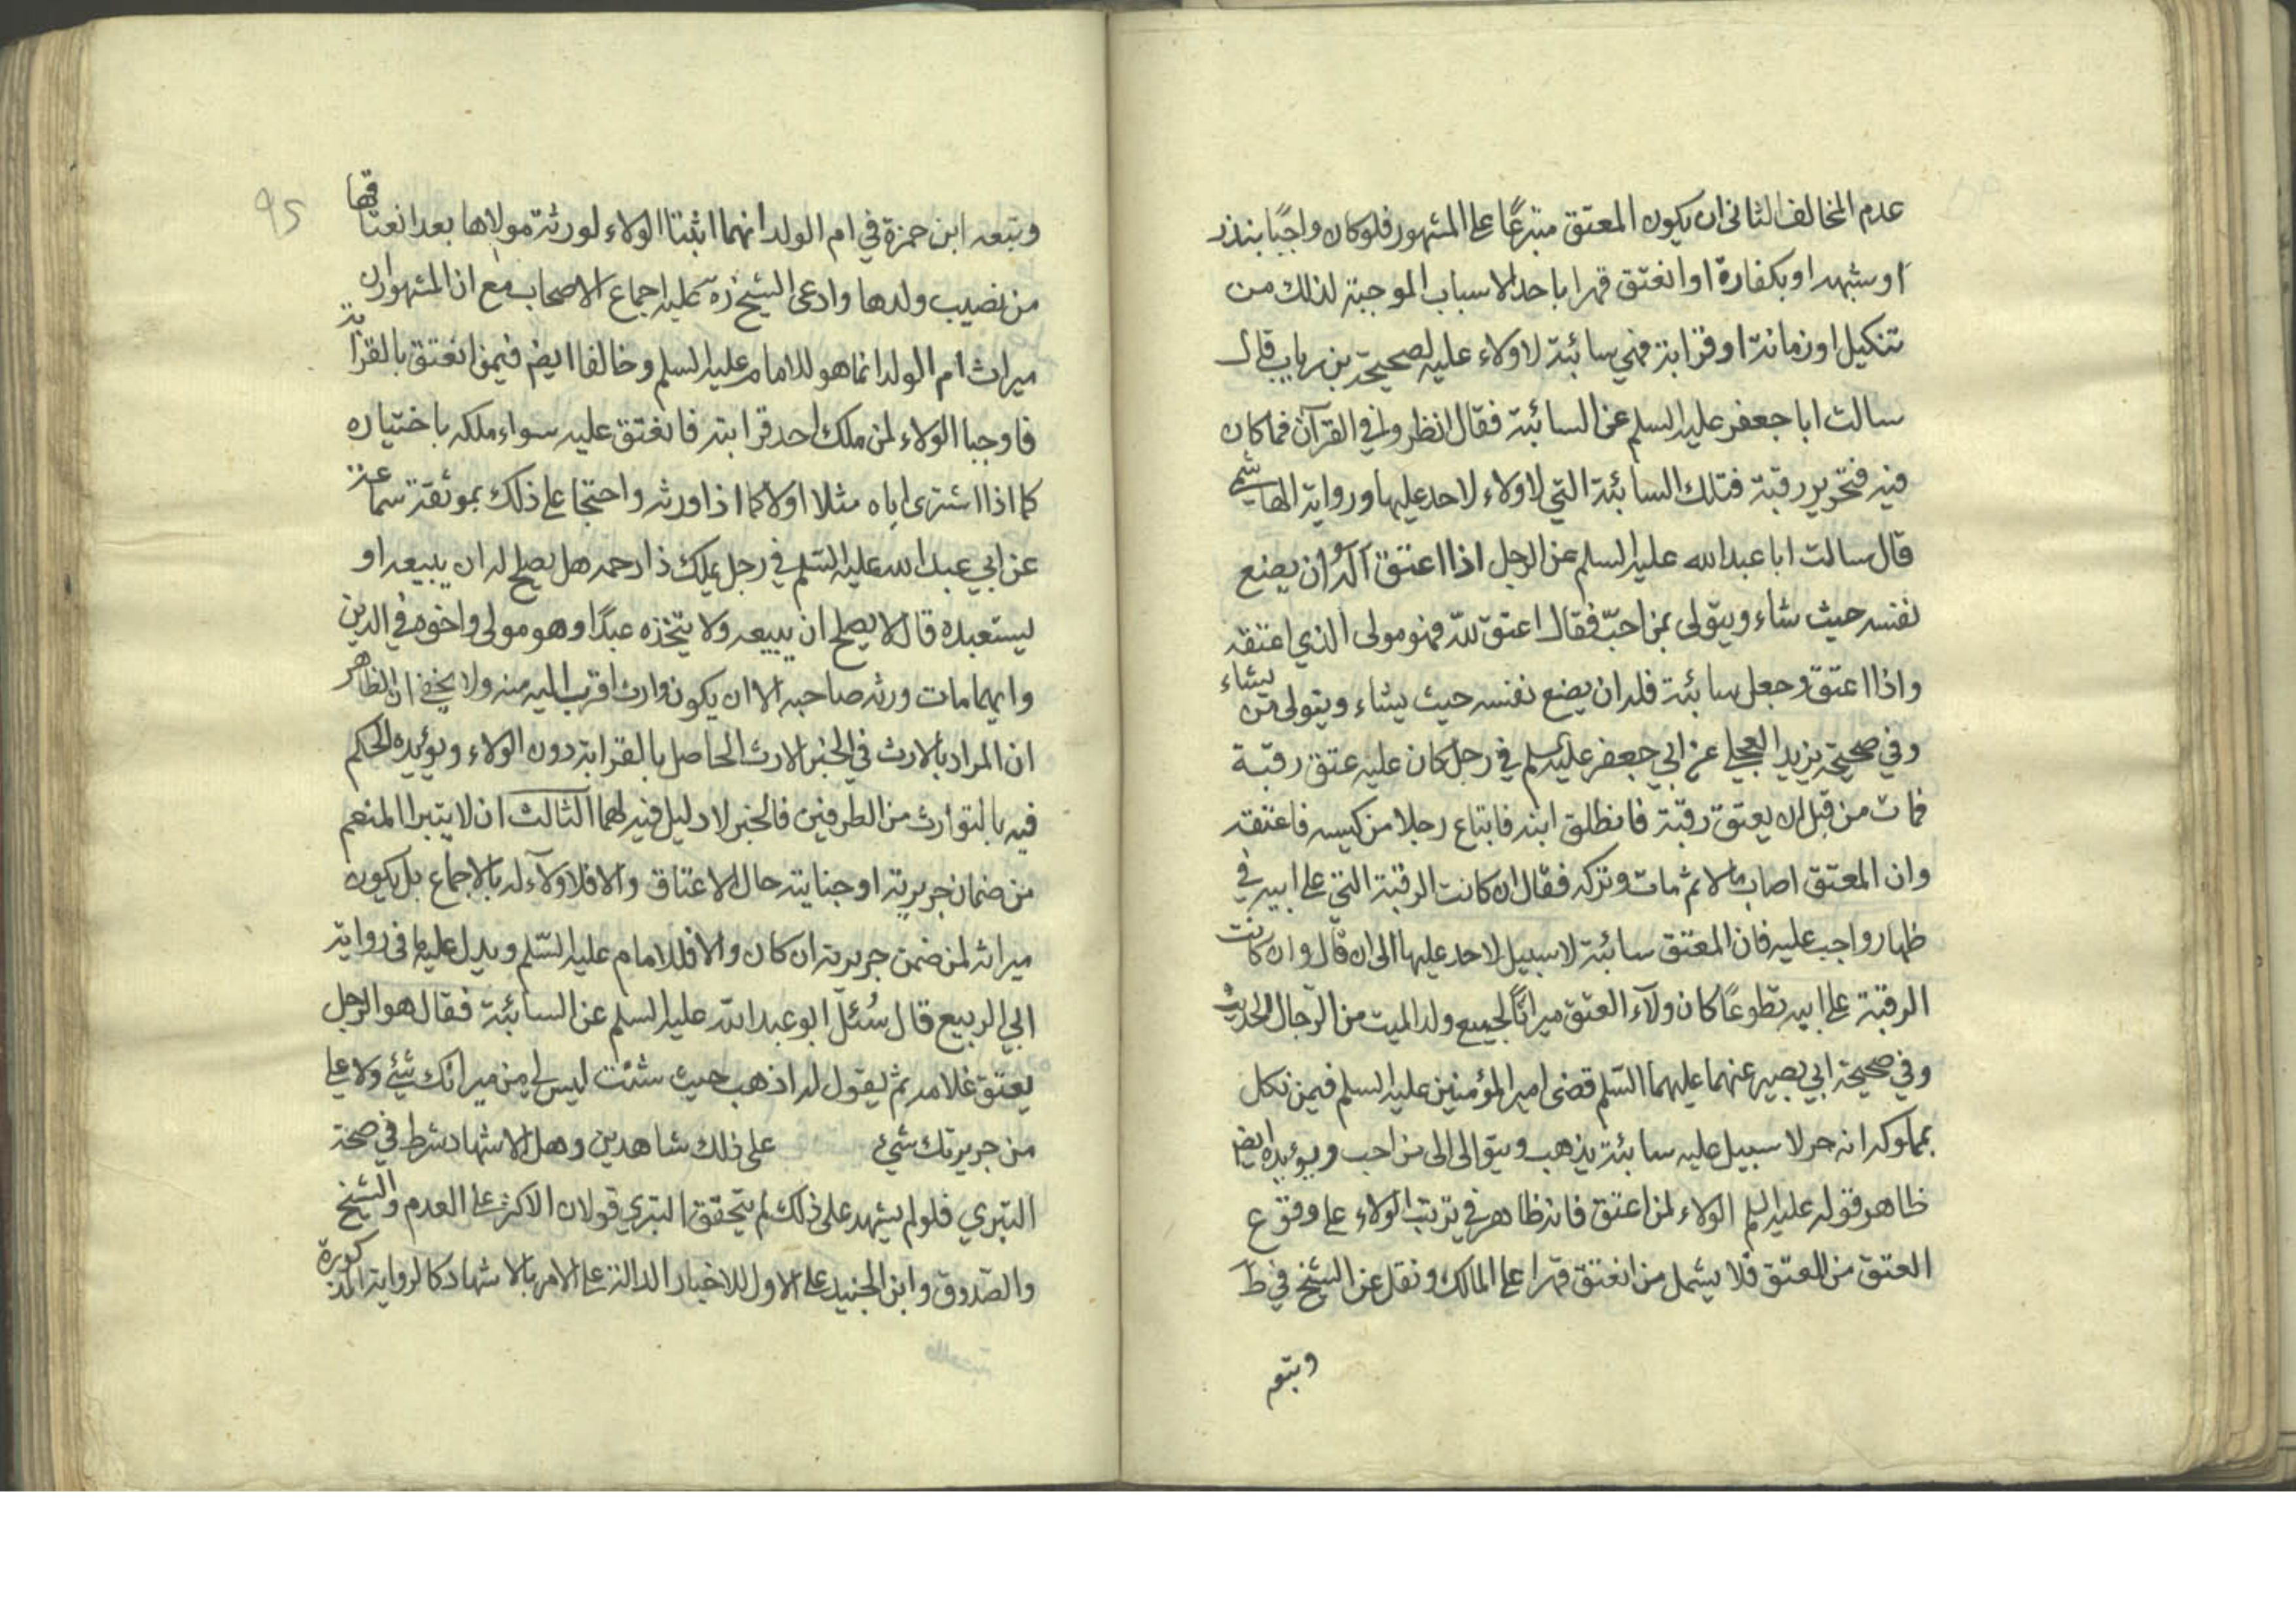 عدم المخالف الثانى ان يكون المعتق متبرعًا على المشهور فلو كان واجبًا بنذر
او شبهه او بكفارة او انعتق قهرا باحد الاسباب الموجبة لذلك من
تنكيل او زمانة او قرابة فهي سائبة لا ولاء عليه لصحيحة بن رياب قال
سالت ابا جعفر عليه السلم عن السائبة فقال انظروا في القرآن فما كان
فيه فتحرير رقبة فتلك السائبة التي لا ولاء لاحد عليها ورواية الهاشمي
قال سالت ابا عبد الله عليه السلم عن الرجل اذا اعتق اله ان يضع
نفسه حيث شاء ويتولى بمن احبّ فقال اعتق للّه فهو مولى الذي اعتقه
واذا اعتق وجعل سائبة فله ان يضع نفسه حيث يشاء ويتولى من يشاء
وفي صحيحة يزيد العجلي عن ابي جعفر عليه السلم في رجل كان عليه عتق رقبة
فمات من قبل ان يعتق رقبة فانطلق ابنه فابتاع رجلا من كيسه فاعتقه
وان المعتق اصاب مالا ثم مات وتركه فقال ان كانت الرقبة التي على ابيه في
ظهار واجب عليه فان المعتق سائبة لا سبيل لاحد عليها الى ان قال وان كانت
الرقبة على ابيه تطوعًا كان ولآء العتق ميراثًا لجميع ولد الميت من الرّجال الحديث
وفي صحيحة ابي بصير عنهما عليهما السّلم قضى امير المؤمنين عليه السلم فيمن نكل
بمملوكه انه حر لا سبيل عليه سائبة يذهب ويتوالى الى من احب ويؤيده ايضا
ظاهر قوله عليه السلم الولاء لمن اعتق فانه ظاهر في ترتب الولاء على وقوع
العتق من المعتق فلا يشمل من انعتق قهرا على المالك ونقل عن الشيخ في ط
وبتعه
95
وبتعه ابن حمزة في ام الولد انهما اثبتا الولاء لورثة مولاها بعد انعتاقها
من نصيب ولدها وادعى الشيخ ره عليه اجماع الاصحاب مع ان المشهور ان
ميراث ام الولد انما هو للامام عليه السلم وخالفا ايضا فيمن انعتق بالقرابة
فاوجبا الولاء لمن ملك احد قرابته فانعتق عليه سواء ملكه باختياره
كما اذا اشترى اباه مثلا او لا كما اذا ورثه واحتجا على ذلك بموثقة سماعة
عن ابي عبد الله عليه السّلم في رجل يملك ذا رحمه هل يصلح له ان يبيعه او
يستعبده قال لا يصلح ان يبيعه ولا يتخذه عبدًا وهو مولى واخوه في الدين
وايهما مات ورثه صاحبه الا ان يكون وارث اقرب اليه منه ولا يخفى ان الظاهر
ان المراد بالارث في الخبر الارث الحاصل بالقرابة دون الولاء ويؤيده الحكم
فيه بالتوارث من الطرفين فالخبر لا دليل فيه لهما الثالث ان لا يتبرا المنعم
من ضمان جريرته او جنايته حال الاعتاق والا فلا ولآء له بالاجماع بل يكون
ميراثه لمن ضمن جريرته ان كان والا فللامام عليه السّلم ويدل عليه ما فى رواية
ابي الربيع قال سُئل ابو عبد اللّه عليه السلم عن السائبة فقال هو الرجل
يعتق غلامه ثم يقول له اذهب حيث شئت ليس لي من ميراثك شيئ ولا علي
من جريرتك شيئ على ذلك شاهدين وهل الاشهاد شرط في صحة
التبري فلو لم يشهد على ذلك لم يتحقق التبري قولان الاكثر على العدم والشيخ
والصّدوق وابن الجنيد على الاول للاخبار الدالة على الامر بالاشهاد كالرواية المذكورة